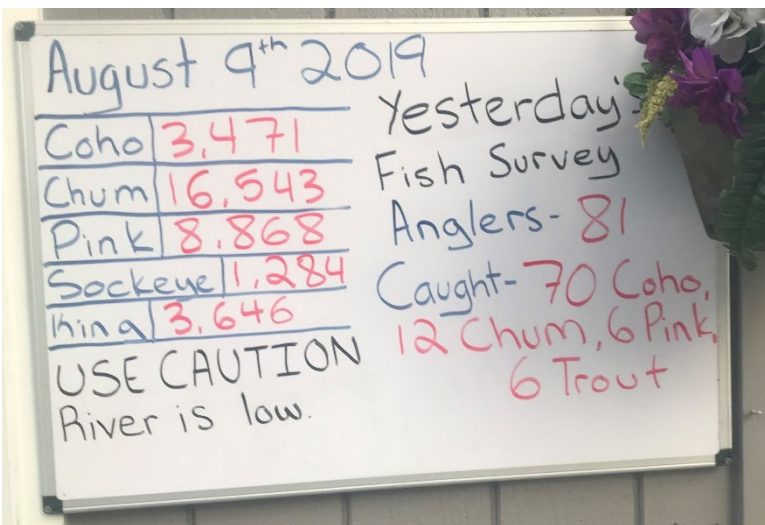 August 9th 2019
Coho 3,471
Chum 16,543
Pink 8,868
Sockeye 1,284
King 3,646
USE CAUTION
River is low.
Yesterday's
Fish Survey
Anglers- 81
Caught- 70 Coho,
12 Chum, 6 Pink,
6 Trout